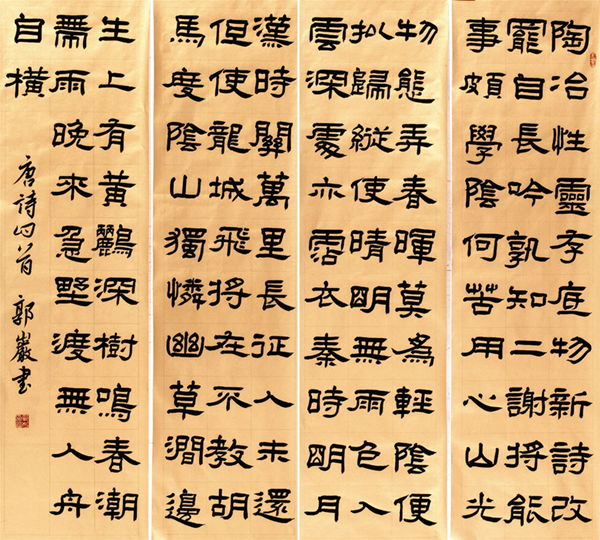 陶冶性靈存底物新詩改
罷自長吟孰知二謝將能
事頗學陰何苦用心山光
物態弄春暉莫為輕陰便
拟歸縱使晴明無雨色入
雲深處亦霑衣秦時明月
漢時關萬里長征人未還
但使龍城飛將在不教胡
馬度陰山獨憐幽草澗邊
生上有黃鸝深樹鳴春潮
帶雨晚來急野渡無人舟
自橫
唐詩四首 郭巖書